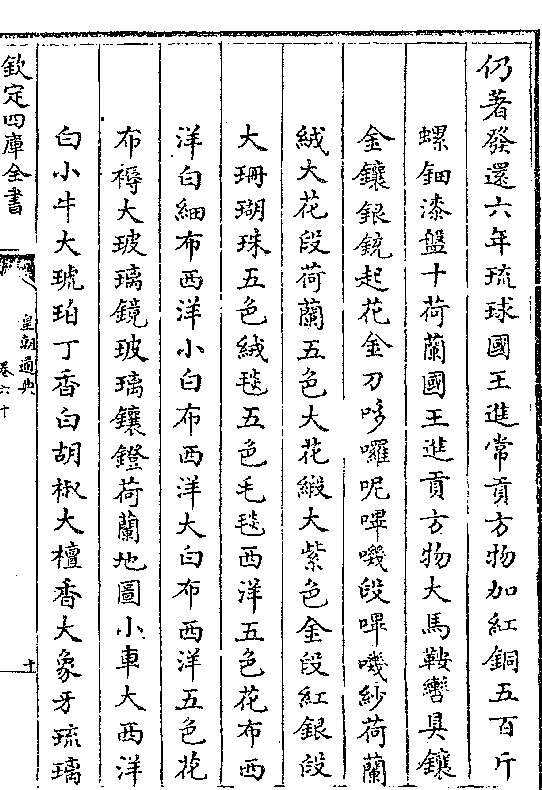 仍著發還六年琉球國王進常貢方物加紅銅五百斤
螺鈿漆盤十荷蘭國王進貢方物大馬鞍轡具鑲
金鑲銀銃起花金刀哆囉呢嗶嘰段嗶嘰紗荷蘭
絨大花段荷蘭五色大花緞大紫色金段紅銀段
大珊瑚珠五色絨毯五色毛毯西洋五色花布西
洋白細布西洋小白布西洋大白布西洋五色花
布褥大玻璃鏡玻璃鑲鐙荷蘭地圖小車大西洋
白小牛大琥珀丁香白胡椒大檀香大象牙琉璃
欽定四庫全書
皇朝通典
卷六十
十